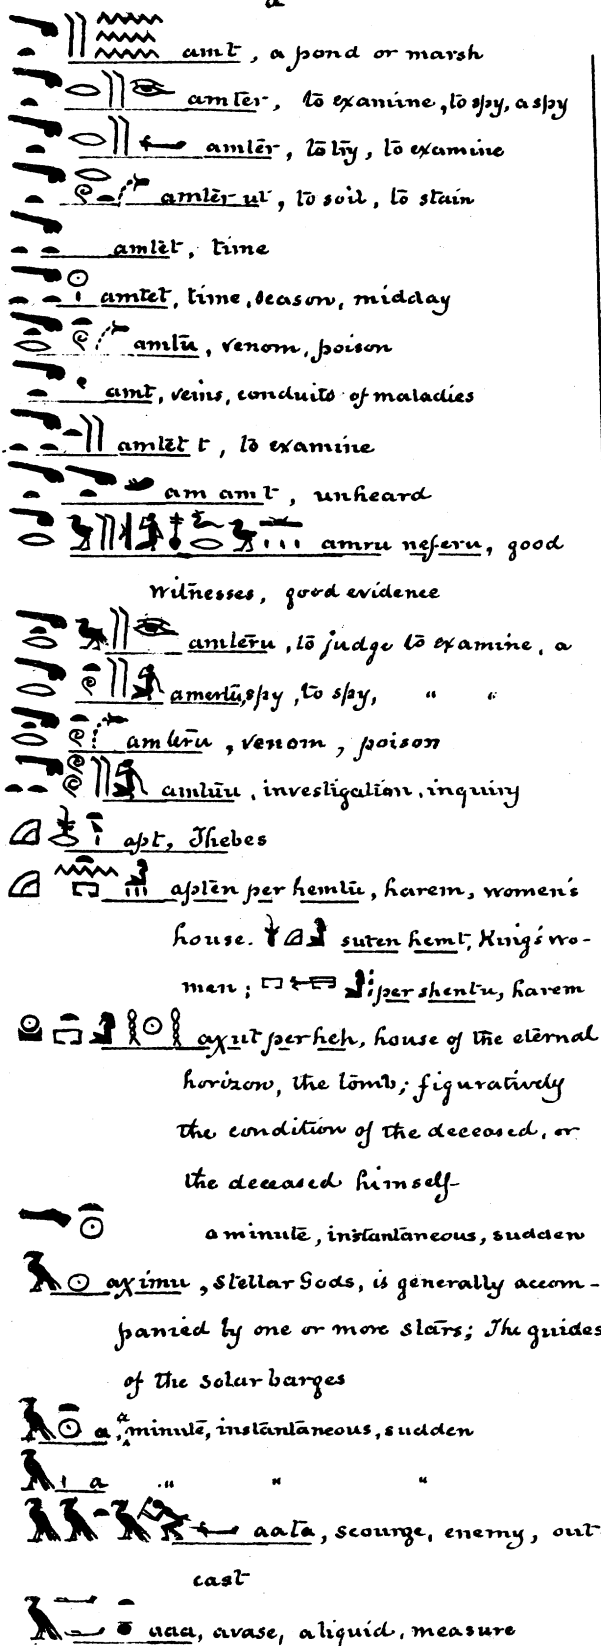 a
amt, a pond or marsh
amter, to examine, to spy, a spy
amter, to try, to examine
amter ut, to soil, to stain
amtet, time
amtet, time, season, midday
amtu, venom, poison
amt, veins, conduits of maladies
amtet t, to examine
am amt, unheard
amru neferu, good
witnesses, good evidence
amteru, to judge to examine, a
amertu, spy, to spy, " "
amteru, venom, poison
amtuu, investigation, inquiry
apt, Thebes
apten per hemtu, harem, women's
house. suten hemt, King's wo-
men; per shentu, harem
axut per heh, house of the eternal
horizon, the tomb; figuratively
the condition of the deceased, or
the deceased himself-
a minute, instantaneous, sudden
aximu, Stellar Gods, is generally accom-
panied by one or more stars; The guides
of the solar barges
a, a minute, instantaneous, sudden
a " " "
aata, scourge, enemy, out
cast
aaa, a vase, a liquid, measure